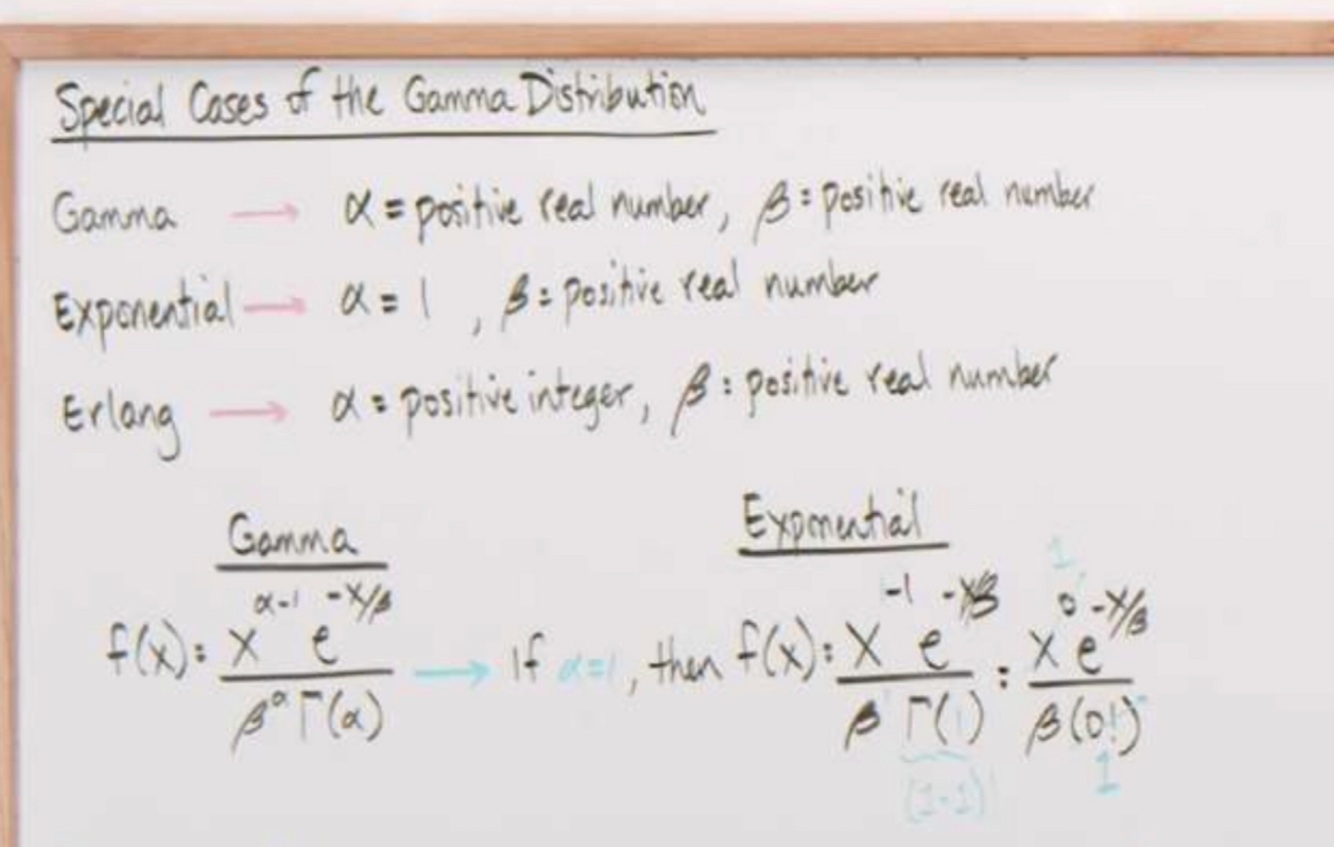 Special Cases of the Gamma Distribution
Gamma → α = positive real number, β = positive real number
Exponential → α = 1, β = positive real number
Erlang → α = positive integer, β = positive real number
Gamma
Exponential
f(x) = x^(α-1) e^(-x/β) / β^α Γ(α) → If α=1, then f(x) = x^(1-1) e^(-x/β) / β^1 Γ(1) = x^0 e^(-x/β) / β(0!)
1
(1-1)!
1